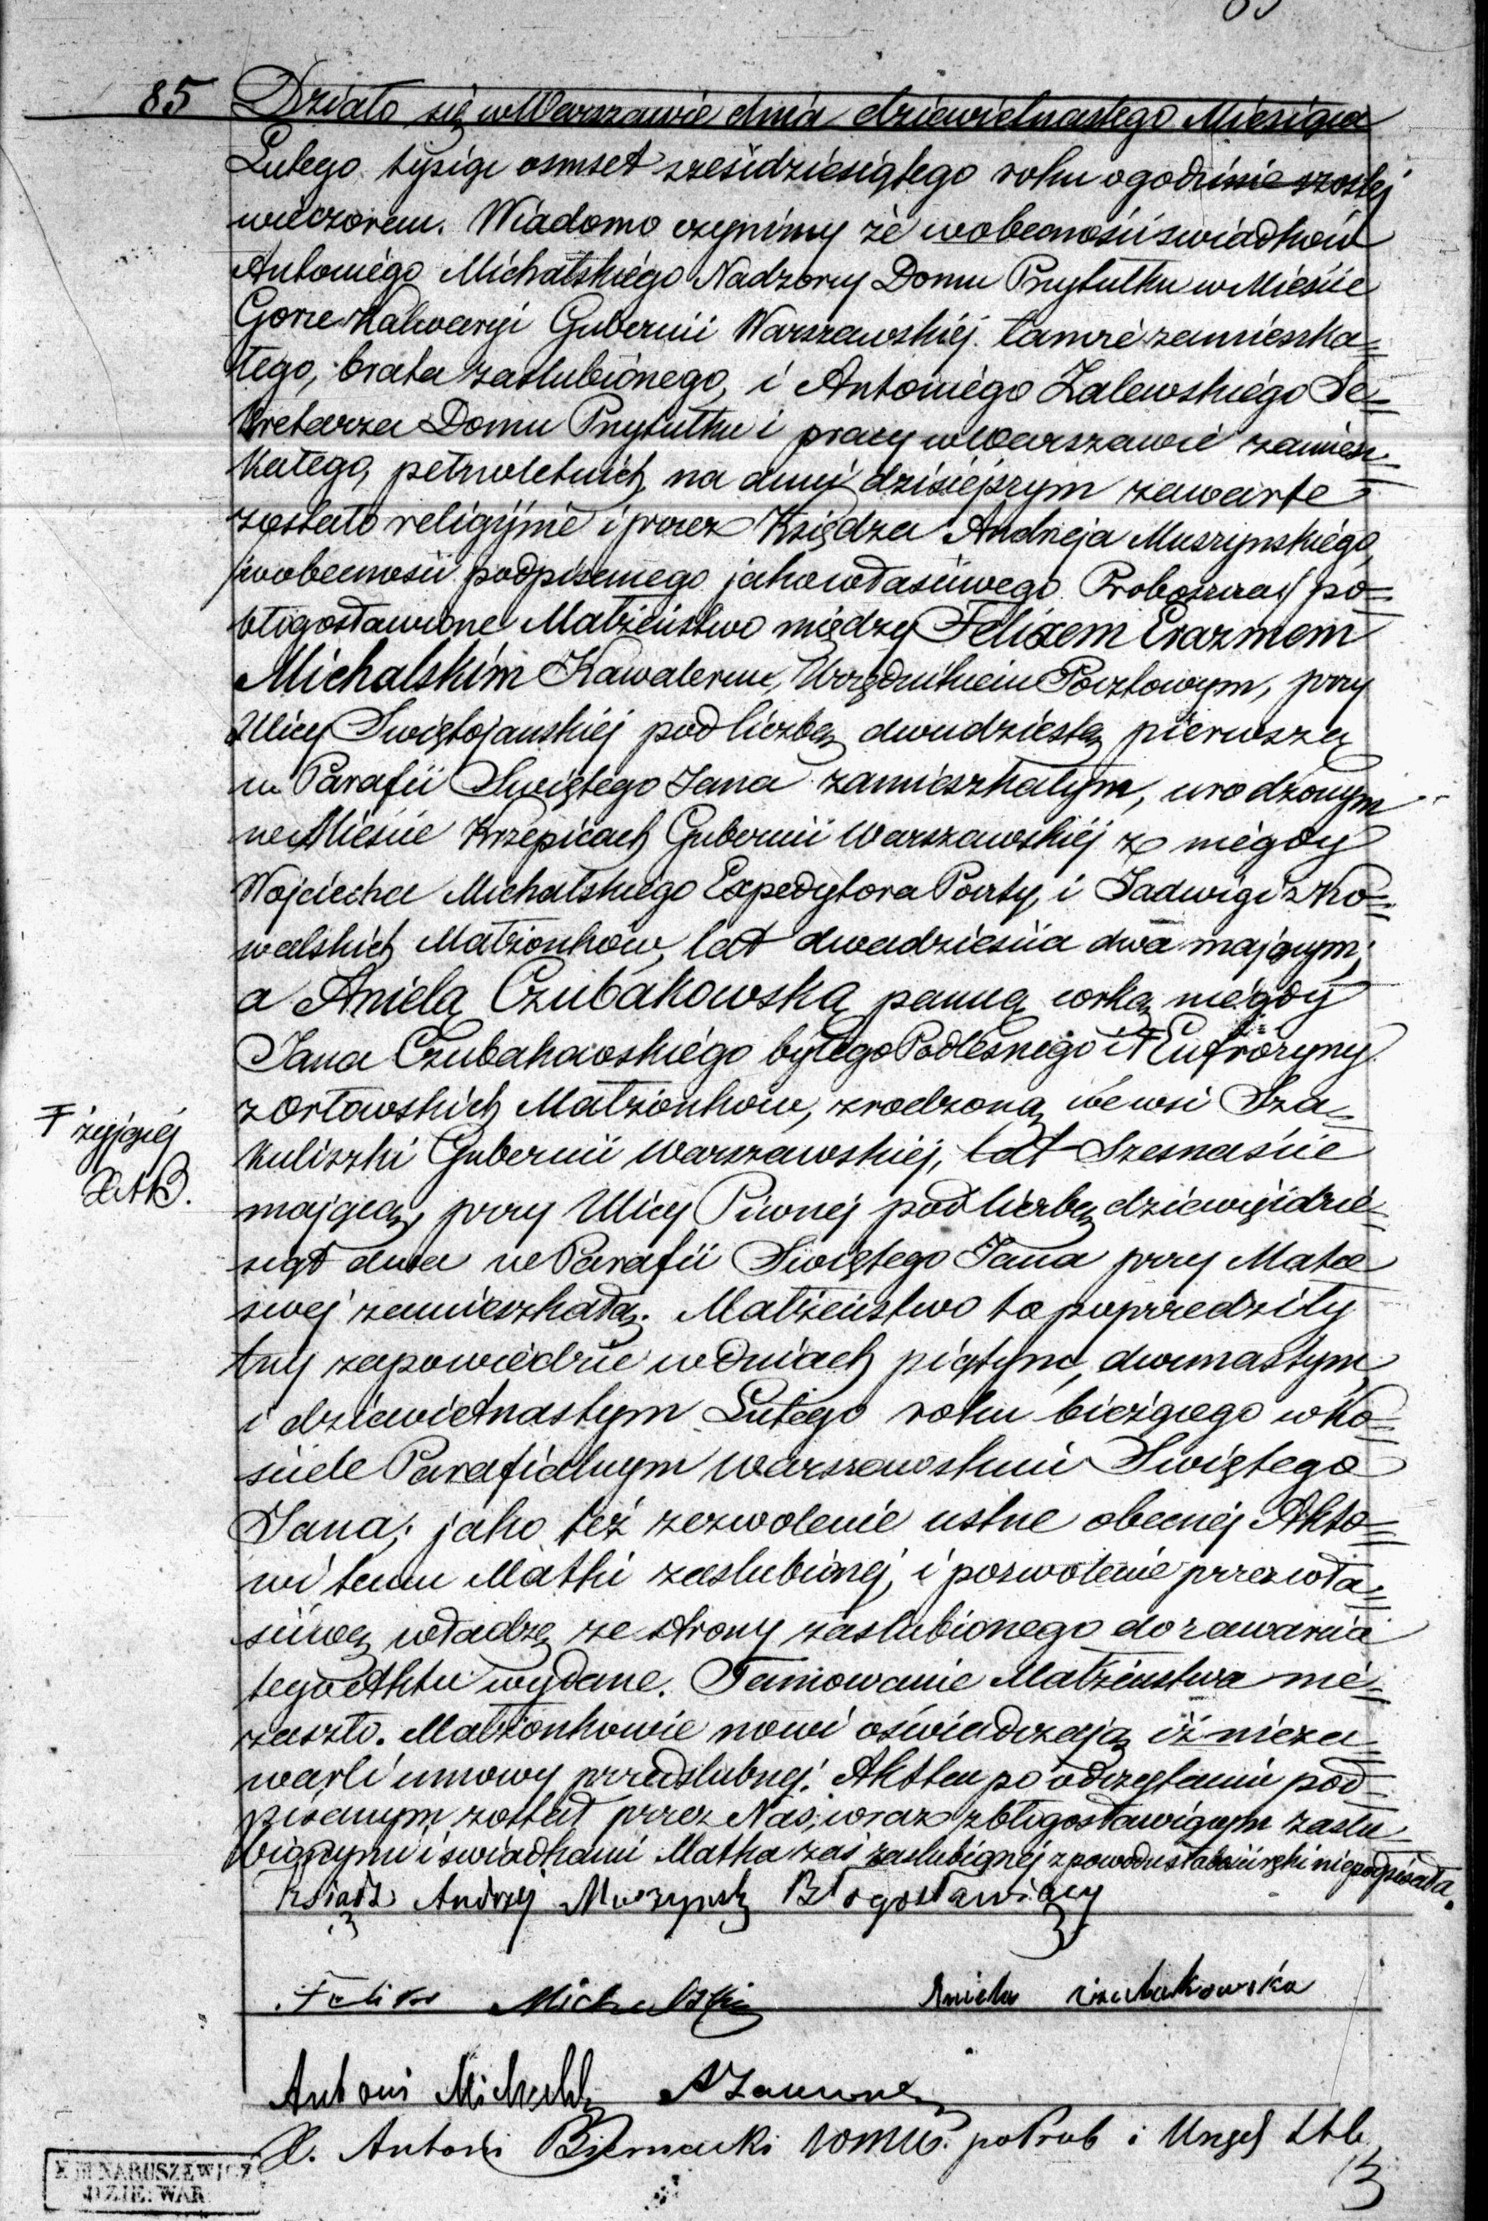 85 Działo się w Warszawie dnia dziewietnastego Miesiąca
Lutego tysiąc osmset sześćdziesiątego roku o godzinie szostej
wieczorem. Wiadomo czynimy że w obecności swiadków
Antoniego Michalskiego Nadzorcy Domu Przytułku w Mieście
Gorze Kalwaryi Gubernii Warszawskiéj tamże zamieszka=
łego, brata zaślubionego, i Antoniego Zalewskiégo Se=
kretarza Domu Przytułku i pracy w Warszawie zamiesz=
kałego, pełnoletnich, na dniu dzisiejszym zawarte
zostało religijnie i przez Księdza Andrzeja Muszynskiégo,
/w obecności podpisanego jako właściwego Proboszcza/ po=
błogosławione Małżeństwo między Felixem Erazmem
Michalskim Kawalerem, Urzędnikiem Pocztowym, przy
Ulicy Swiętojanskiéj pod liczbą dwudziestą pierwszą
w Parafii Swiętego Jana zamieszkałym, urodzonym
w Mieście Krzepicach Gubernii Warszawskiéj z niegdy
Wojciecha Michalskiego Expedytora Poczty, i Jadwigi z Ko=
walskich Małżonków, lat dwadzieścia dwa mającym;
a Anielą Czubakowską panną corką niegdy
Jana Czubakowskiégo byłego Podleśnégo i Ŧ Eufrozyny
z Orłowskich Małżonków, zrodzoną we wsi Sza=
Ŧ żyjącéj
XAB.
kuliszki Gubernii Warszawskiej, lat Szesnaście
mającą, przy Ulicy Piwnéj pod liczbą dziewięćdzie=
siąt dwa w Parafii Swiętego Jana przy Matce
swej zamieszkałą. Małżeństwo to poprzedziły
trzy zapowiedzie w dniach piątym, dwunastym
i dziewietnastym Lutego roku bieżącego w Ko=
ściele Parafialnym Warszawskim Swiętego
Jana; jako też zezwolenie ustne obecnéj Akto=
wi temu Matki zaślubionéj, i pozwolenie przez wła=
ściwą władzę ze strony zaślubionego do zawarcia
tego Aktu wydane. Tamowanie Małżeństwa nie=
zaszło. Małżonkowie nowi oświadczają iż nieza=
warli umowy przedślubnej. Akt ten po odczytaniu pod=
pisanym został przez Nas, wraz z błogosławiącym zaślu=
bionymi i świadkami Matka zaś zaślubionéj z powodu słabości ręki niepodpisała.
Ksiądz Andrzej Muszynski Błogosławiący
Felix Michalski Aniela Czubakowska
Antoni Michalski
X. Antoni Biernacki
X III NARUSZEWICZ
DZIE: WAR